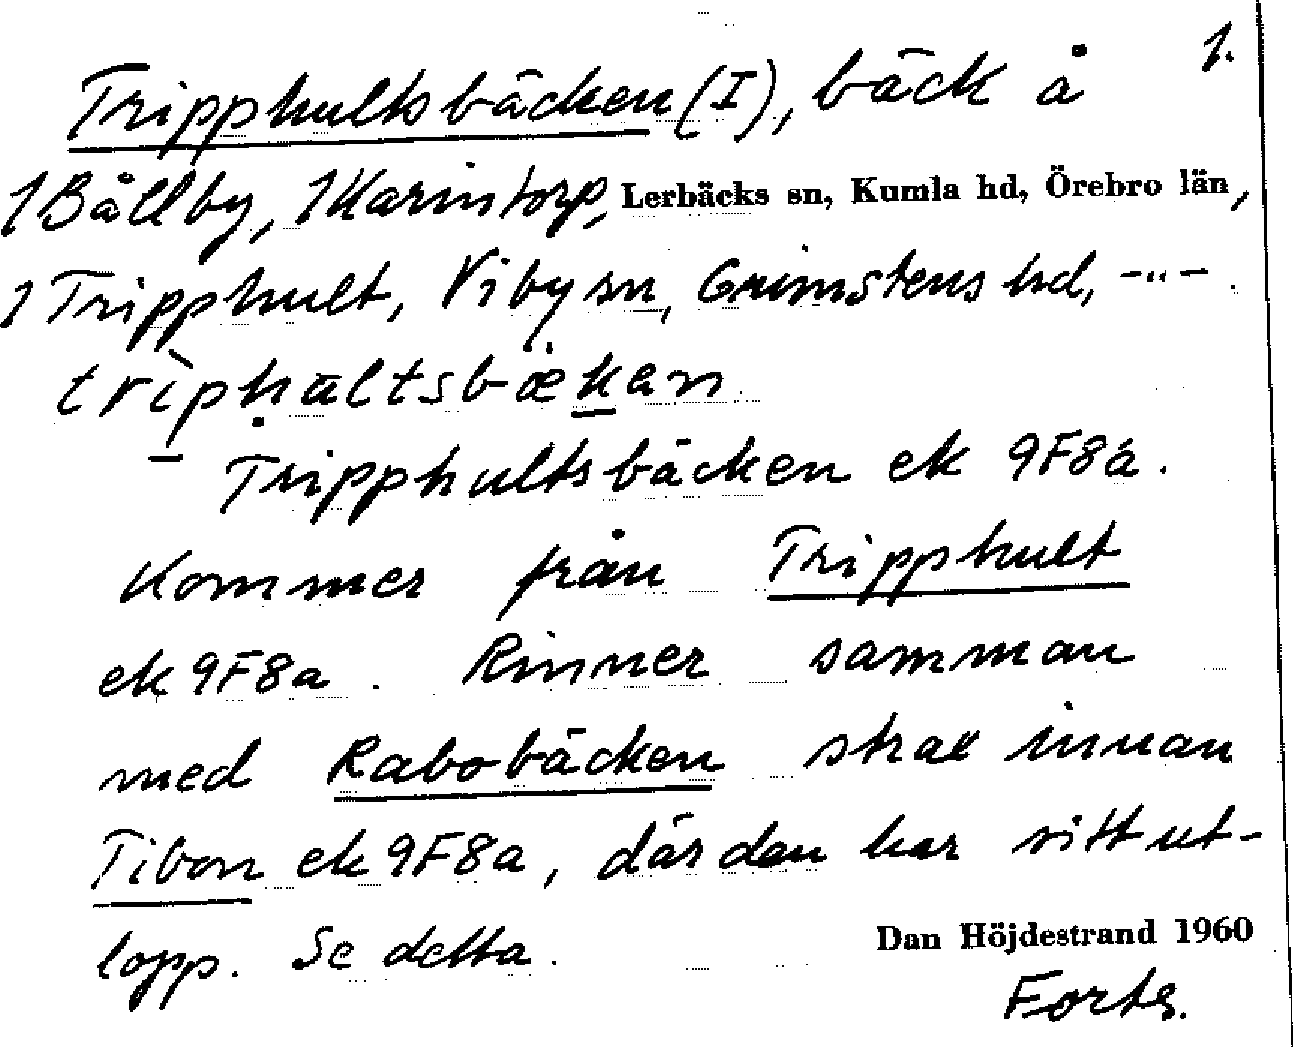 1.
Tripphultsbäcken (I), bäck å
1 Bållby, 1 Karintorp, Lerbäcks sn, Kumla hd, Örebro län,
1 Tripphult, Viby sn, Grimstens hd, -"-.
Tripphultsbäcken ek 9F8a.
Kommer från Tripphult
ek 9F8a. Rinner samman
med Rabobäcken strax innan
Tibon ek 9F8a, där den har sitt ut-
lopp. Se detta.
Dan Höjdestrand 1960
Forts.